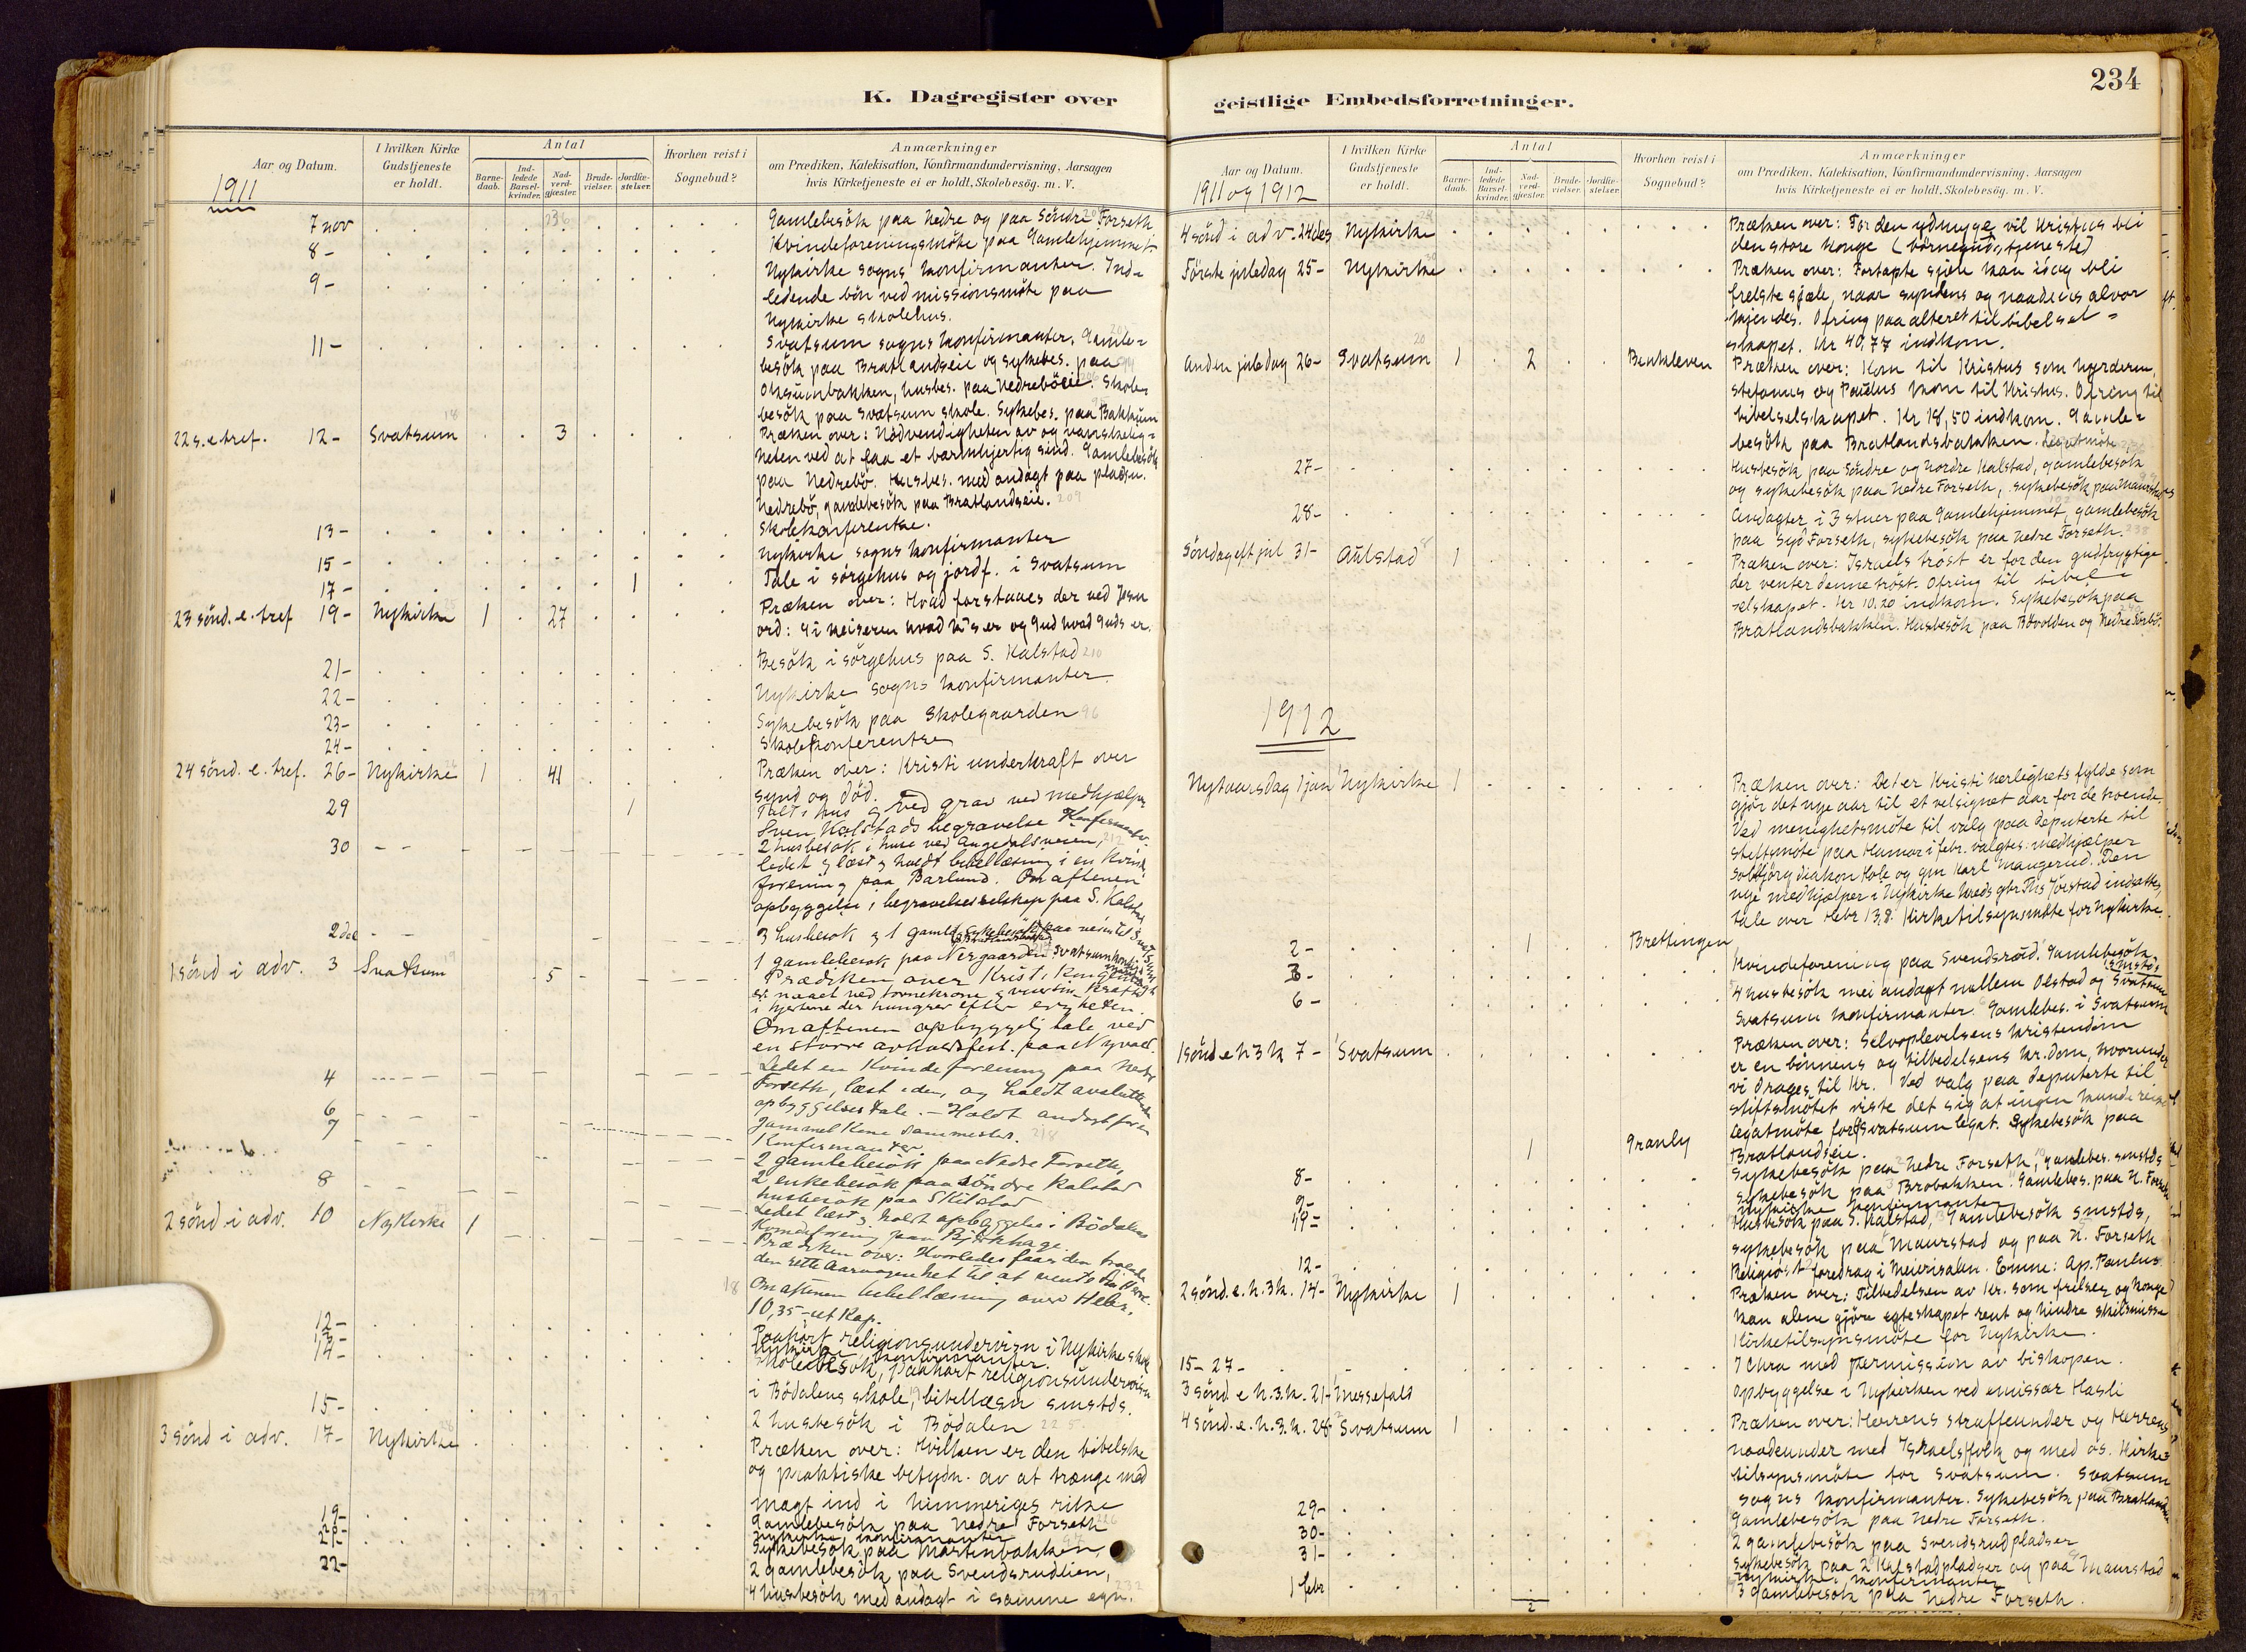 K. Dagregister over
Aar og Datum.
I hvilken Kirke Gudstjeneste er holdt.
Antal
Barne-daab.
Ind-ledede Barsel-kvinder.
Nad-verd-gjæster.
Brude-vielser.
Jordfæ-stelser.
Hvorhen reist i Sognebud?
Anmærkninger
om Prædiken, Katekisation, Konfirmandundervisning, Aarsagen
hvis Kirketjeneste ei er holdt, Skolebesög. m. V.
1911
7 nov Gamlebesök paa Nedre og paa Söndre Forseth
8- Kvindeforeningsmöte paa Gamlehjemmet
9- Nykirke sogns konfirmanter. Ind-
ledende bön ved missionsmöte paa
Nykirke skolehus.
11- Svatsum sogns konfirmanter. Gamle-
besök paa Bratlandseie og sykebes. paa
Olsumbakken, husbes. paa Nedreböeie. Skole-
besök paa Svatsum skole. Sykebes. paa Bakkum
22 s. e. tref. 12- Svatsum 3 Præken over: Nödvendigheten av og vanskelig-
heten ved at faa et barmhjertig sind. Gamlebesök
paa Nedrebö. Husbes. med andagt paa pladsn.
Nedrebö, gamlebesök paa Bratlandseie. 209
13- Skolekonferentse.
15- Nykirke sogns konfirmanter
17- 1 Tale i sörgehus og jordf. i Svatsum
23 sönd. e. tref 19- Nykirke 1 27 Præken over: Hvad forstaaes der ved Jesu
ord: Gi keiseren hvad k's er og Gud hvad Guds er.
21- Besök i sörgehus paa S. Kalstad 210
22- Nykirke sogns konfirmanter.
23- Sykebesök paa Skolegaarden 96
24- Skolekonferentse
24 sönd. e. tref. 26- Nykirke 1 41 Præken over: Kristi underkraft over
synd og död.
29 1 Talt i hus og ved grav ved medhjælper
Sven Kalstads begravelse Konfirmanter
30 2 husbesök i huse ved Augedalsveien,
ledet og læst og holdt bibellæsning i en Kvinde-
forening paa Barlund. Om aftenen
opbyggelse i begravelsesselskap paa S. Kalstad
2 dec 3 husbesök og 1 gamleb.
1 gamlebesök paa Nergaarden
1 sönd i adv. 3 Svatsum 5 Prædiken over Kristi Kongemagt
i hjertene der hungrer efter
Om aftenen opbyggelig tale ved
en större avholdsfest. paa
4 Ledet en Kvindeforening paa Nedre
Forseth, læst i den, og holdt avsluttende
opbyggelsestale. - Holdt andagt for en
6 gammel Kone sammested. 218
7 Konfirmanter.
2 gamlebesök paa Nedre Forseth,
8 2 enkebesök paa Söndre Kalstad
husbesök paa
2 sönd i adv. 10 Nykirke 1 Ledet læst og holdt opbyggelse i Bödalens
Kvindeforening paa Björkhage.
Prædiken over: Hvorledes faar den troende
den rette Aarvaagenhet til at vente
18 Om aftenen bibellæsning over Hebr.
10,35-ut Kap.
12- Paahört religionsundervisn i Nykirke skole
13- Nykirke konfirmanter.
14- Skolebesök, paahört religionsundervisn
i Bödalens skole, bibellæsn smstds.
15- 2 husbesök i Bödalen 225
3 sönd i adv. 17- Nykirke Præken over: Hvilken er den bibelske
og praktiske betydn. av at trænge med
magt ind i himmeriges rike
19- Gamlebesök paa Nedre Forseth
21- Nykirke konfirmanter
22- Sykebesök paa Martinbakken,
2 gamlebesök paa Svendsrudlien,
4 husbesök med andagt i samme egn. 232
234
geistlige Embedsforretninger.
Aar og Datum.
I hvilken Kirke Gudstjeneste er holdt.
Antal
Barne-daab.
Ind-ledede Barsel-kvinder.
Nad-verd-gjæster.
Brude-vielser.
Jordfæ-stelser.
Hvorhen reist i Sognebud?
Anmærkninger
om Prædiken, Katekisation, Konfirmandundervisning, Aarsagen
hvis Kirketjeneste ei er holdt, Skolebesög. m. V.
1911 og 1912
4 sönd i adv. 24 des Nykirke Præken over: For den ydmyge vil Kristus bli
den store konge (börnegudstjeneste)
Förste juledag 25- Nykirke Præken over: Fortapte sjæle kan idag bli
frelste sjæle, naar syndens og naadens alvor
kjendes. Ofring paa alteret til bibelsel-
skapet. Kr 40,77 indkom.
Anden juledag 26- Svatsum 1 2 Benkleven Præken over: Kom til Kristus som hyrderne,
Stefanus og Paulus kom til Kristus. Ofring til
bibelselskapet. Kr 18,50 indkom. Gamle-
besök paa Bratlandsbakken. Legatmöte
27- Husbesök paa Söndre og Nordre Kalstad, gamlebesök
og sykebesök paa Nedre Forseth, sykebesök paa Maurstad
28- Andagter i 3 stuer paa Gamlehjemmet, gamlebesök
paa Syd Forseth, sykebesök paa Nedre Forseth.
Söndag eft jul 31- Aulstad 1 Præken over: Israels tröst er for den gudfrygtige
der venter denne tröst. Ofring til bibel-
selskapet. Kr 10.20 indkom. Sykebesök paa
Bratlandsbakken. Husbesök paa Bövolden og
1912
Nytaarsdag 1 jan Nykirke 1 Præken over: Det er Kristi herlighets fylde som
gjör det nye aar til et velsignet aar for de troende.
Ved menighetsmöte til valg paa deputerte til
stiftsmöte paa Hamar i febr. valgtes: medhjælper
Solbjörg diakon Kole og gm Karl Haugerud. Den
nye medhjælper i Nykirke Jöistad indsattes,
tale over Hebr 13,8. Kirketilsynsmöte for Nykirke.
2- 1 Brettingen Kvindeforening paa Svendsrud. Gamlebesök smstds
3- 4 husbesök mei andagt mellem Olstad og Svatsum
6- Svatsum konfirmanter. Gamlebes. i Svatsum
1 sönd e h 3 k 7- Svatsum Præken over: Selvoplevelsens kristendom
er en bönnens og tilbedelsens kr.dom, hvorunder
vi drages til Kr. Ved valg paa deputerte til
stiftsmötet viste det sig at ingen kunde reise
legatmöte for Svatsum legat. Sykebesök paa
Bratlandseie.
8- 1 Granly Sykebesök paa Nedre Forseth, gamlebes. smstds
sykebesök paa Brobakken. Gamlebes. paa N. Forseth
9- Nykirke konfirmanter
11- Husbesök paa S. Kalstad, Gamlebesök smstds,
sykebesök paa Maurstad og paa N. Forseth
12- Religiöst foredrag i Meierisalen. Emne: Ap. Paulus
2 sönd. e. h. 3 k. 14- Nykirke 1 Præken over: Tilbedelsen av Kr. som frelser og konge
kan alene gjöre egteskapet rent og hindre skilsmisse
Kirketilsynsmöte for Nykirke.
15-27- I Chra med permission av biskopen.
3 sönd e h. 3. k. 21- Messefald Opbyggelse i Nykirken ved emissær Hasli
4 sönd. e. h. 3. k. 28- Svatsum 1 Præken over: Herrens straffeunder og Herrens
naadeunder med Israelsfolk og med os. Kirke-
tilsynsmöte for Svatsum. Svatsum
sogns konfirmanter. Sykebesök paa
29- Gamlebesök paa Nedre Forseth.
30- 2 gamlebesök paa Svendsrudpladser
31- Sykebesök paa 2 Kalstadpladser og paa Maurstad
Nykirke konfirmanter
1 febr 3 gamlebesök paa Nedre Forseth.
2